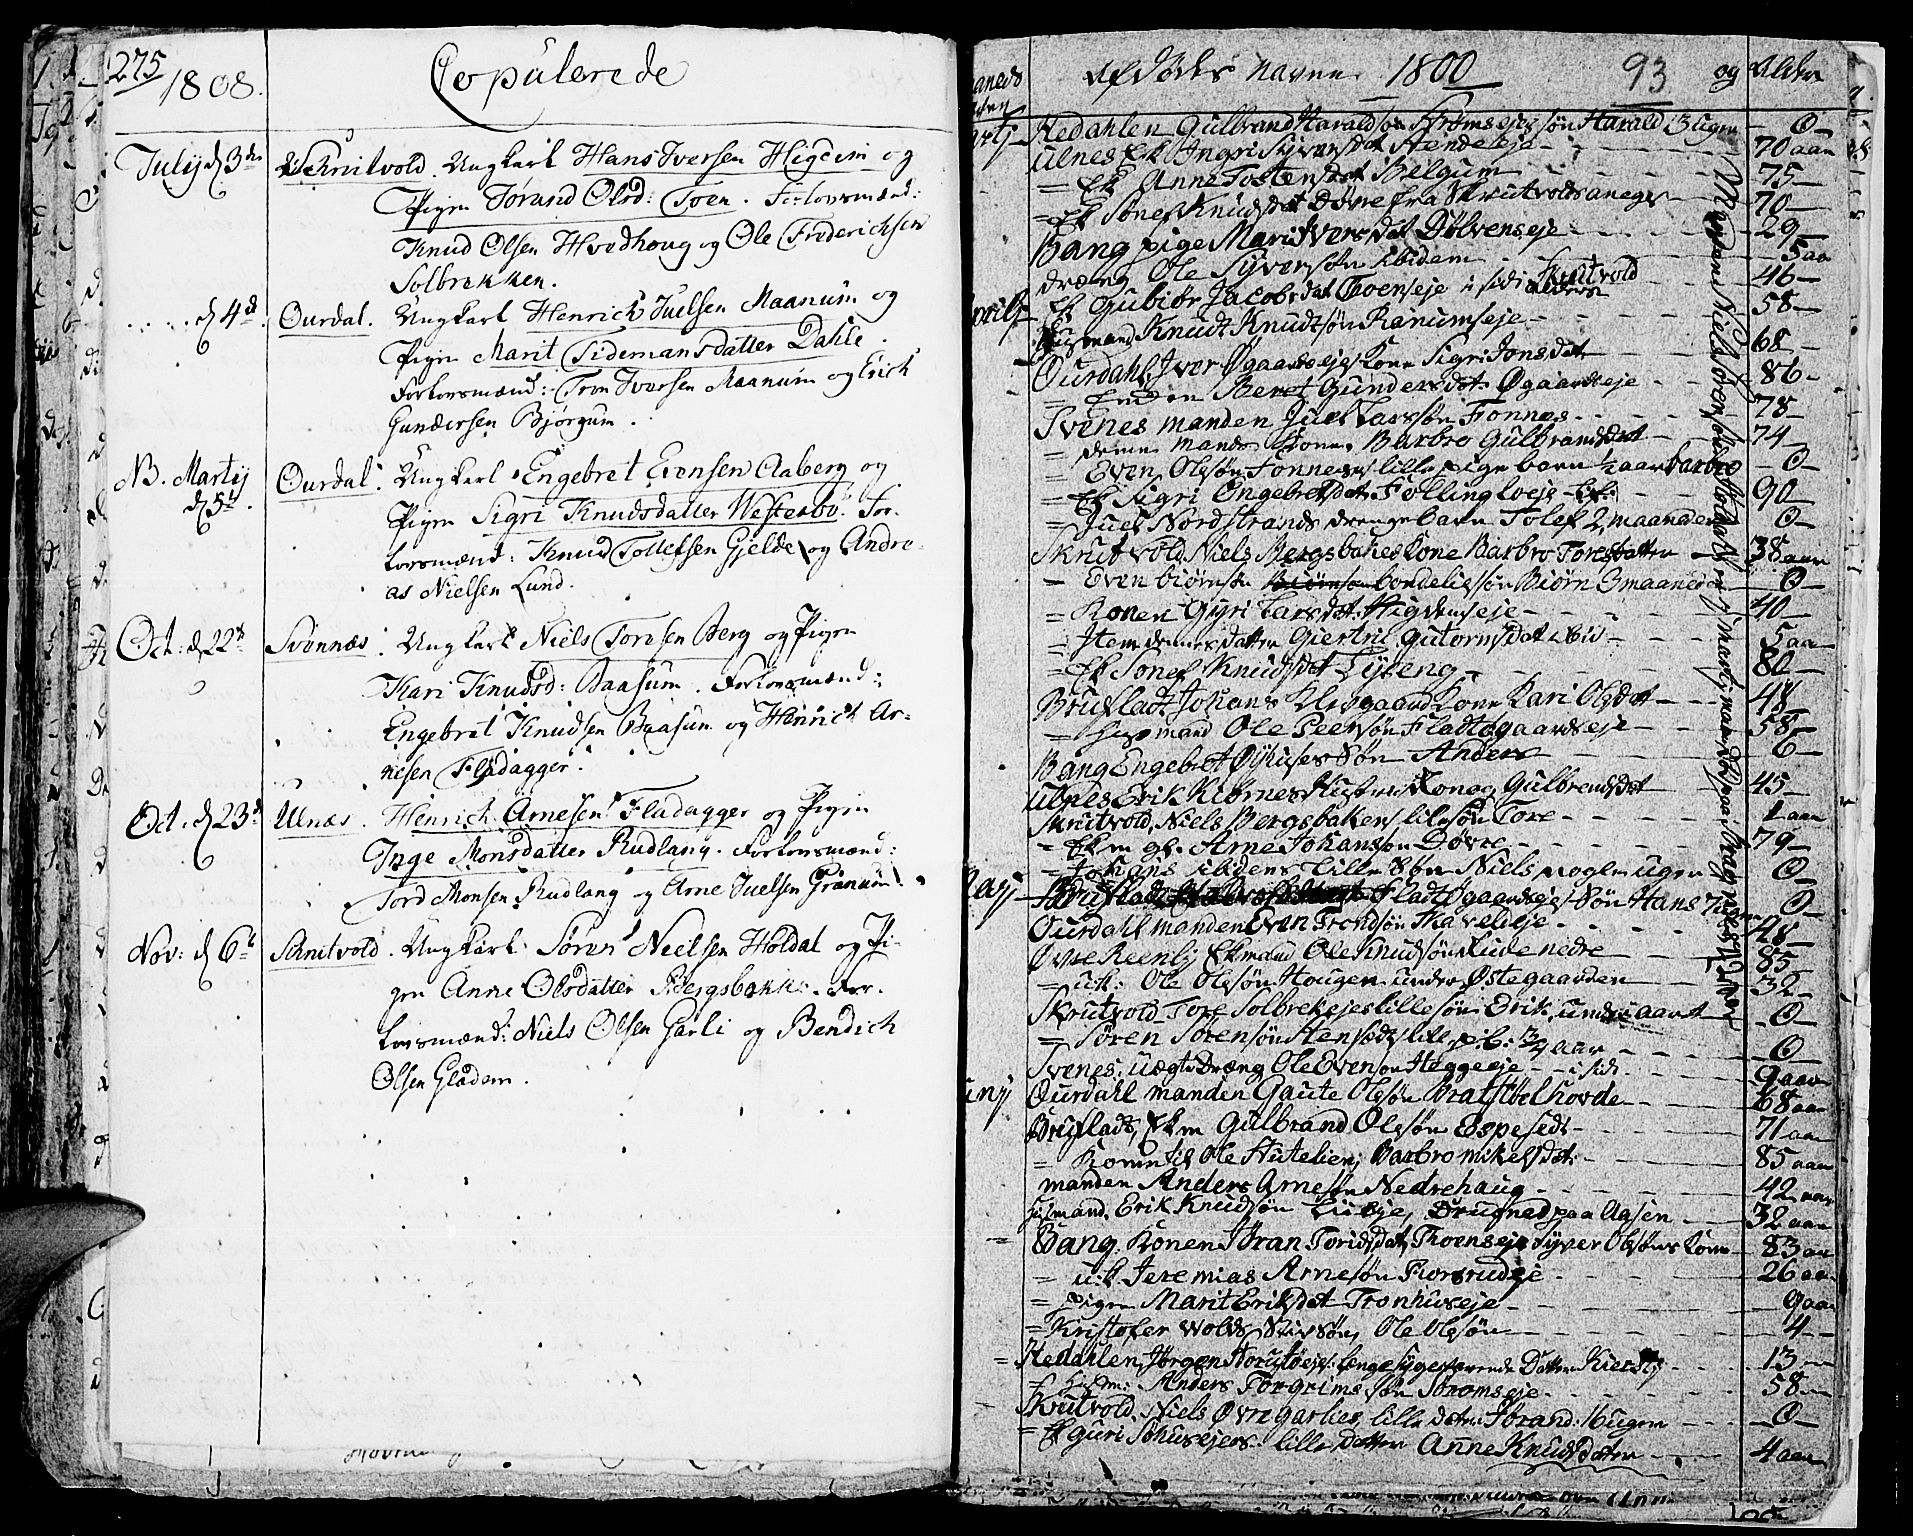 275
1808. Copulerede
Julij d 3die Skrutvold. Ungkarl Hans Iversen Higdem og
Pigen Jørand Olsd: Toen. Forlovsmænd:
Knud Olsen Hvedhoug og Ole Frederichsen
Solbrekken.
d 4de Ourdal. Ungkarl Henrich Juelsen Maanum og
Pigen Marit Tidemansdatter Dahle.
Forlovsmænd: Tron Iversen Maanum og Erich
Gundersen Bjørgum.
NB. Martij Ourdal. Ungkarl Engebret Evensen Aaberg og
d 5t. Pigen Sigri Knudsdatter Westerbö. For-
lovsmænd: Knud Tollefsen Gjelde og Andre-
as Nielsen Lund.
Oct: d 22d Svennæs. Ungkarl Niels Toresen Berg og Pigen
Kari Knudsd: Baasum. Forlovsmænd:
Engebret Knudsen Baasum og Henrich Ar-
nesen Fladagger.
Oct. d 23d Ulnæs. Henrich Arnesen Fladagger og Pigen
Inge Monsdatter Rudlang. Forlovsmænd:
Tord Monsen Rudlang og Arne Juelsen Granum.
Nov: d 6t Skrutvold. Ungkarl Søren Neelsen Holdal og Pi-
gen Anne Olsdatter Bergsbakke. For-
lovsmænd: Niels Olsen Garli og Bendich
Olsen Gladem.
Afdødes Navne 1800 93 og Alder
Hedahlen Gulbrand Haraldsøn Strømsejes søn Harald 3 ugen 0
Ulnes Ek Ingri Syversdat Stendeleje 70 aar
= Ek Anne Tostensdat Belgum 75
= Ek Sønef Knudsdat Døvre fra Skrutvolds aneget 70
Bang pige Marit Iversdat Dølvenseje 29
dræng Ole Syversøn ibidem 5 aar
Ek Gubiør Jacobsdat Toenseje i sidi Skrutvold 46
Husmand Knudt Knudtsøn Ranumseje 58
Ourdahl, Iver Øgaardsejes Kone Sigri Jonsdat 68
= Enken Beret Gundersdat Øgaardseje 86
Svenes manden Juel Larssøn Fonnes 78
= denne mands Kone Barbro Gulbrandsdat 74
= Even Olsøn Fonnes lille pige barn 1/2 aar Barbro 0
= Ek Sigri Engebretsdat Follingloeje 90
= Juel Nordstrands drengebarn Tolef 2 maaneder 0
Skrutvold Niels Bergsbakes Kone Barbro Toresdatter 38 aar
= Even biørnsøn bondelies søn Biørn 3 maaneder 0
= Konen Gyri Larsdat Higdemseje 40
= Item dennes datter Giertru Gutormsdat ibid 5 aar
= Ek Sønef Knudsdat Lykeng 80
Brufladt Johans Klevgaard Kone Kari Olsdat 48
= Husmand Ole Peersøn Fladtøgaardseje 58
Bang Engebret Øjhuses Søn Anders 6
Ulnes Erik Kiørnes Kone Gulbrandsdat 45
Skrutvold, Niels Bergsbakens lille søn Tore 1 aar
= Ek m gl. Arne Johansøn Døvre 79
= Johans ibidens lille Søn Niels nogle ugen 0
Bruflad Fladtøgaardsejes Søn Hans 0
Ourdahl manden Even Trondsøn Skaveleje 48
Øvre Reenlj Ekmand Ole Knudsøn Rude nedre 85
= u.k: Ole Olesøn Hougen under Østegaarden 32
Skrutvold Tore Solbrekejes lille søn Erik, under aaret 0
= Søren Sørensøn Stensæts lille pb: 3/4 aar 0
Svenes, uægte Dræng Ole Evensøn Heggeeje i sidi 9 aar
Ourdahl manden Gaute Olesøn Bratstøelhovde 68 aar
Bruflads, Ekm Gulbrand Olesøn Espesedt 71 aar
= Konen til Ole Hutelien, Barbro mikelsdat. 85 aar
manden Anders Arnesøn Nedrehaug 42 aar
Husmand. Erik Knudsøn Lieeje, Drugned paa Aasen 32 aar
= Bang. Konen Jøran Toridsdat, Thoenseje Syver Olsøns Kone 83 aar
= u:k Jeremias Arnesøn Fiorsrudeje 26 aar
= pigen Marit Eriksdat Tronhuseje 9 aar
= Kristofer Wolds Stivsøn, Ole Olesøn 4
= Hedahlen, Jørgen lenge sygeværende Datter Kiersti 13
= husm: Anders Torgrimssøn Strømseje 58
Skrutvold. Niels Øvregarlies lille datter Jørand 16 ugen 0
= Ek guri lille datter Anne Knudsdatter 4 aar